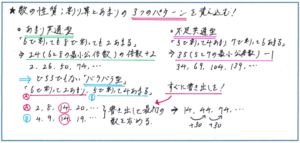 ★数の性質：割り算とあまりの3つのパターンを覚え込む！
○あまり共通型
「6で割っても8で割っても2あまる」
⇒24(6と8の最小公倍数)の倍数+2
2. 26. 50. 74. …
○不足共通型
「5で割って4あまり、7で割って6あまる」
⇒35(5と7の最小公倍数)-1
34. 69. 104. 139. …
⇒どちらでもない"バラバラ型"
「6で割って2あまり、5で割って4あまる」
すぐに書き出し！
Ⓐ 2. 8. 14. 20. …
Ⓑ 4. 9. 14. 19. …
書き出して最初の数を求める。
⇒ 14. 44. 74. …
+30 +30